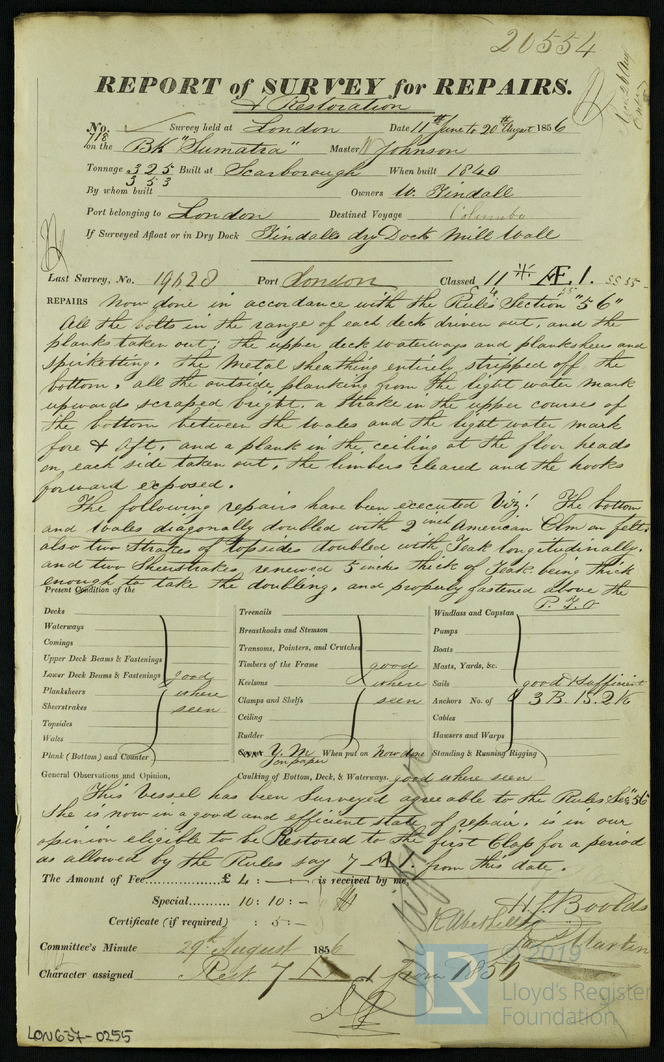 20554
REPORT of SURVEY for REPAIRS.
& Restoration
No. 718 Survey held at London Date 11th June to 20th August 1856
on the Bk "Sumatra" Master W Johnson
Tonnage 325 Built at Scarborough When built 1840
353
By whom built Owners W. Tindall
Port belonging to London Destined Voyage Columbo
If Surveyed Afloat or in Dry Dock Tindalls dry Dock Mill Wall
Last Survey, No. 19628 Port London Classed 11 Æ 1.
REPAIRS Now done in accordance with the Rules Section "56"
All the bolts in the range of each deck driven out, and the
planks taken out; the upper deck waterways and planksheer and
spirketting. The metal sheathing entirely stripped off the
bottom. all the outside planking from the light water mark
upwards scraped bright, a strake in the upper course of
the bottom between the Wales and the light water mark
fore & Aft, and a plank in the ceiling at the floor heads
on each side taken out, the limbers cleared and the hooks
forward exposed.
The following repairs have been executed Viz! The bottom
and Wales diagonally doubled with 2 inch American Elm on felt,
also two Strakes of topsides doubled with Teak longitudinally.
and two Sheerstrakes renewed 5 inches thick of Teak being thick
enough to take the doubling, and properly fastened above the
P. T. O
Present Condition of the
Decks
Waterways
Comings
Upper Deck Beams & Fastenings
Lower Deck Beams & Fastenings
Planksheers
Sheerstrakes
Topsides
Wales
Plank (Bottom) and Counter
good
where
seen
Treenails
Breasthooks and Stemson
Transoms, Pointers, and Crutches
Timbers of the Frame
Keelsons
Clamps and Shelfs
Ceiling
Rudder
good
where
seen
Y. M. on paper When put on Now done
Windlass and Capstan
Pumps
Boats
Masts, Yards, &c.
Sails
Anchors No. of
Cables
Hawsers and Warps
Standing & Running Rigging
good & sufficient
3 B. 1 S. 2 K
General Observations and Opinion,
Caulking of Bottom, Deck, & Waterways. good where seen
This Vessel has been Surveyed agreeable to the Rules Sec "56"
She is now in a good and efficient state of repair. is in our
opinion eligible to be Restored to the first Class for a period
as allowed by the Rules say 7 A 1. from this date.
The Amount of Fee............... £ 4 : - : - is received by me,
Special......... 10 : 10 : -
Certificate (if required) : 5 : -
H. J. Boolds
Martin
Committee's Minute 29th August 1856
Character assigned Rest 7 A 1 from 1856
LON637-0255
© 2019
LR
Lloyd's Register
Foundation